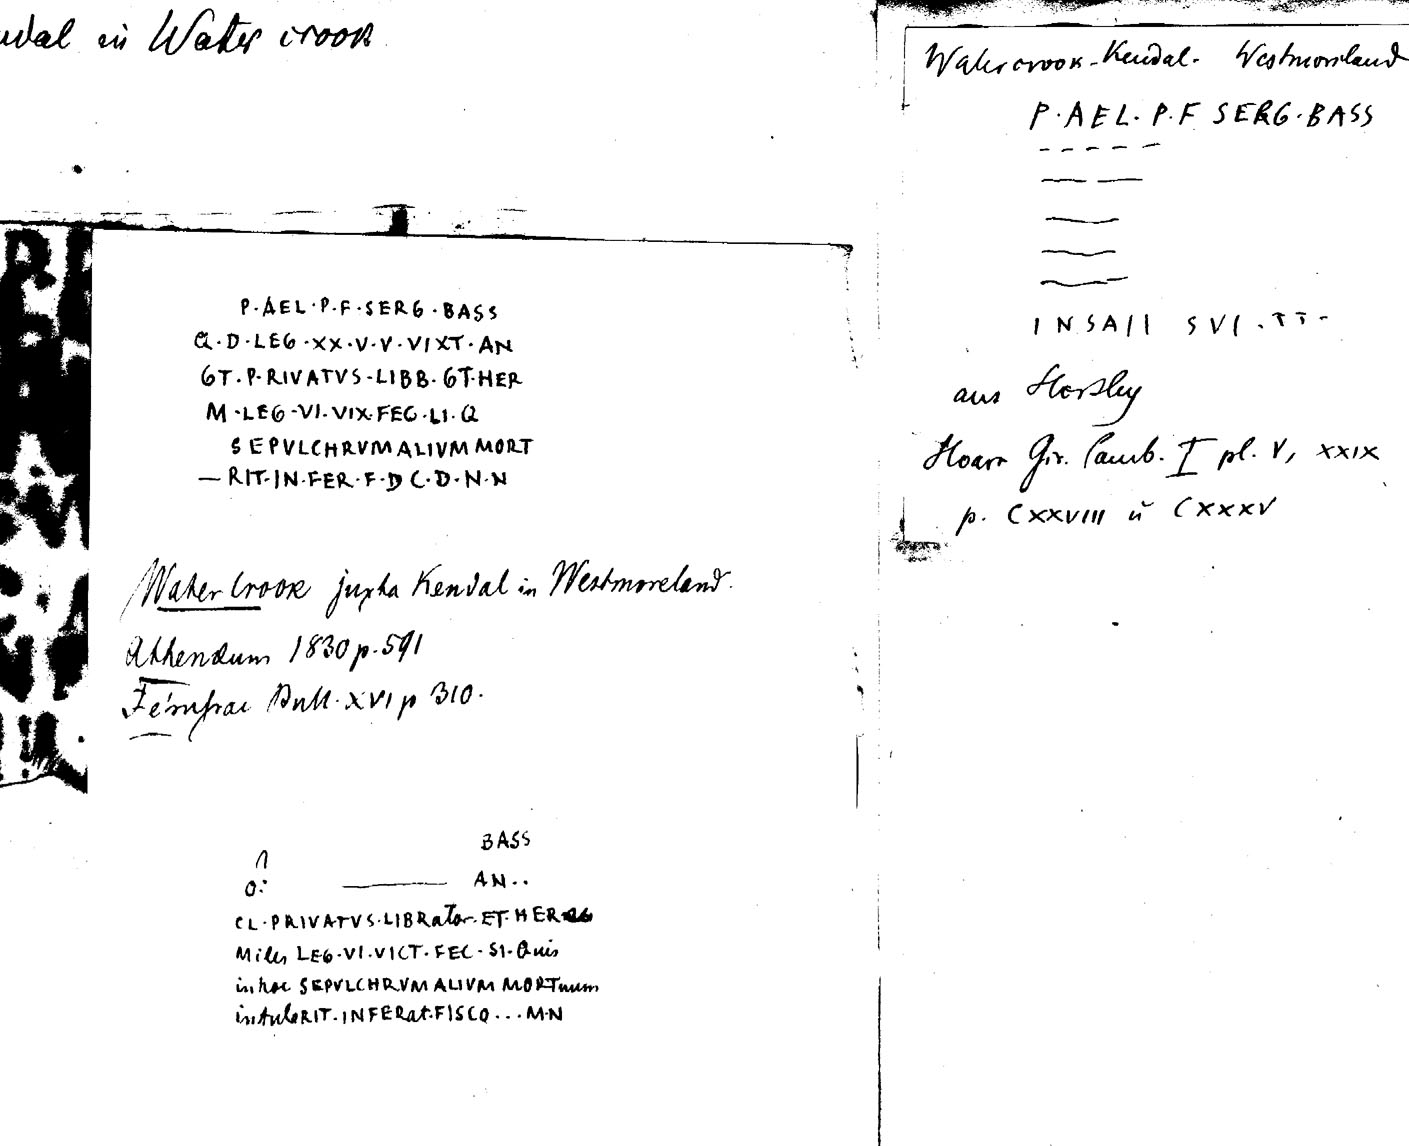 in Water crook
P·AEL·P·F·SERG·BASS
Q·D·LEG·XX·V·V·VIXT·AN
GT·P·RIVATVS·LIBB·GT·HER
M·LEG·VI·VIX·FEC·LI·Q
SEPVLCHRVMALIVMMORT
—RIT·IN·FER·F·D C·D·N·N
Water Crook juxta Kendal in Westmoreland.
1830 p. 591
XVI p 310.
BASS
AN..
CL·PRIVATVS·LIBRator·ET·HER
Miles LEG·VI·VICT·FEC·SI·Quis
in hoc SEPVLCHRVM ALIVM MORTuum
intuleRIT·INFERat·FISCO...M·N
Watercrook-Kendal. Westmoreland
P·AEL·P·F SERG·BASS
INSA
aus Horsley
Hoare Gir. Camb. I pl. V, XXIX
p. CXXVIII ü CXXXV